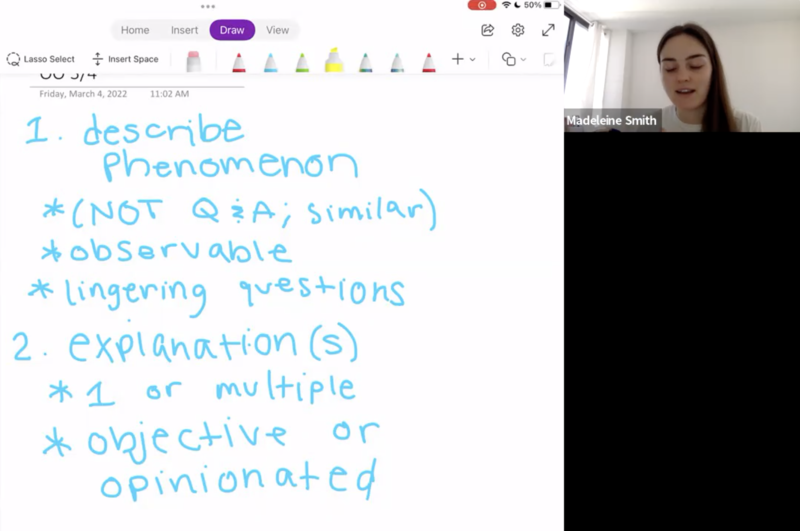 50%
Home Insert Draw View
Lasso Select Insert Space
Friday, March 4, 2022 11:02 AM
Madeleine Smith
1. describe
phenomenon
*(NOT Q & A; similar)
*observable
*lingering questions
2. explanation(s)
*1 or multiple
* objective or
opinionated